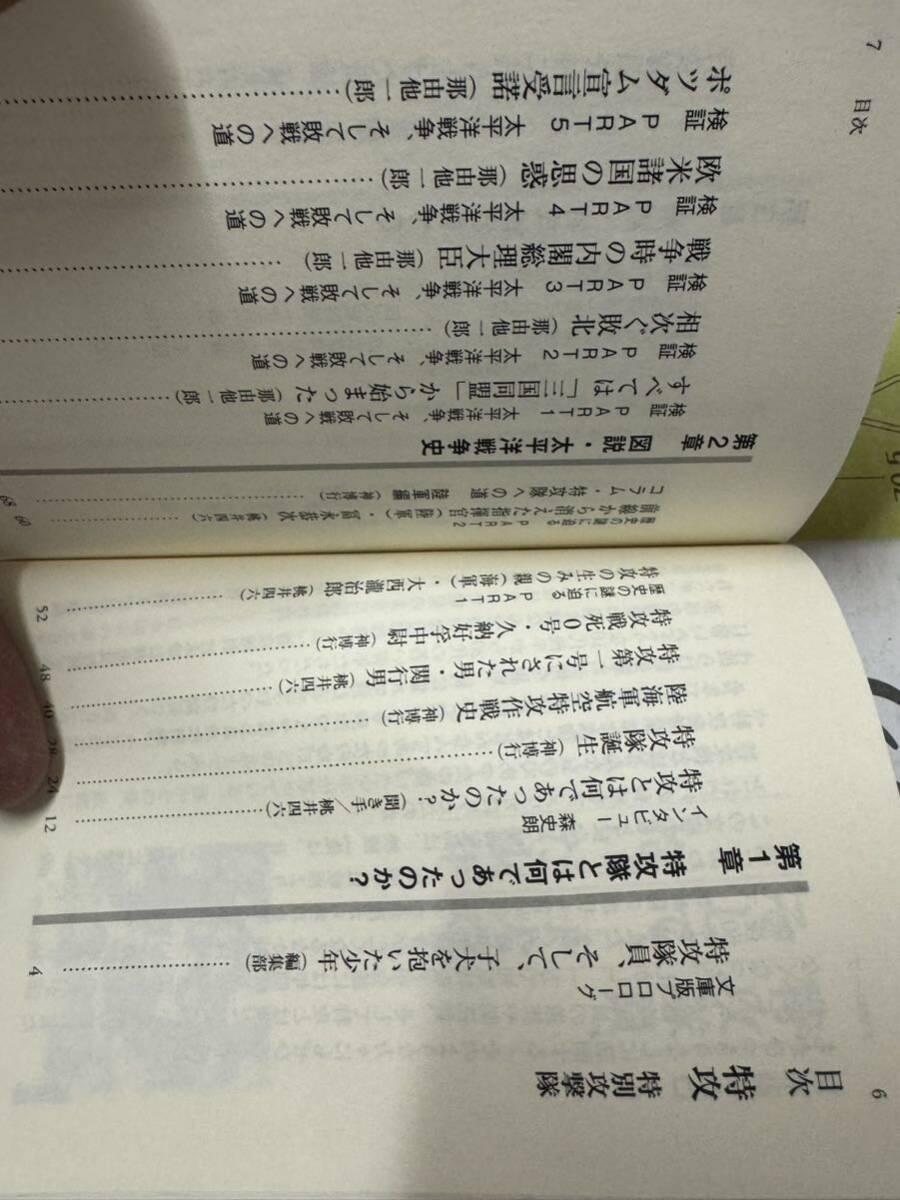 6
目次
特攻 特別攻撃隊
文庫版プロローグ
特攻隊員、そして、子犬を抱いた少年（編集部）
4
第1章 特攻隊とは何であったのか？
インタビュー 森史朗
特攻とは何であったのか？（聞き手／桃井四六）
12
特攻隊誕生（神博行）
24
陸海軍航空特攻作戦史（神博行）
28
特攻第一号にされた男・関行男（桃井四六）
40
特攻戦死0号・久納好孚中尉（神博行）
48
歴史の謎に迫る PART1
特攻の生みの親（海軍）・大西瀧治郎（桃井四六）
52
歴史の謎に迫る PART2
前線から消えた指揮官（陸軍）・冨永恭次（桃井四六）
60
コラム・特攻隊への道 陸軍編（神博行）
68
第2章 図説・太平洋戦争史
検証 PART1 太平洋戦争、そして敗戦への道
すべては「三国同盟」から始まった（那由他一郎）
検証 PART2 太平洋戦争、そして敗戦への道
相次ぐ敗北（那由他一郎）
検証 PART3 太平洋戦争、そして敗戦への道
戦争時の内閣総理大臣（那由他一郎）
検証 PART4 太平洋戦争、そして敗戦への道
欧米諸国の思惑（那由他一郎）
検証 PART5 太平洋戦争、そして敗戦への道
ポツダム宣言受諾（那由他一郎）
7 目次